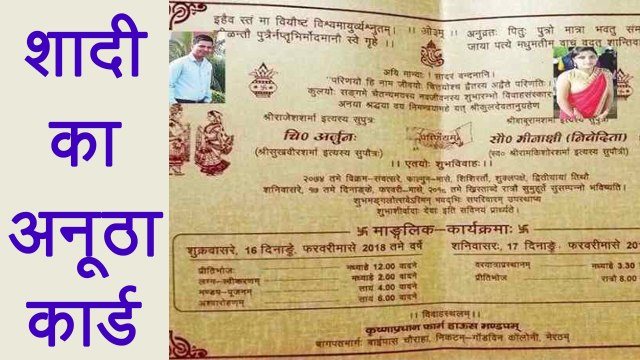 शादी
का
अनूठा
कार्ड
इहैव स्तं मा वियौष्टं विश्वमायुर्व्यश्नुतम्।
।।ओ३म्।।
अनुव्रतः पितुः पुत्रो मात्रा भवतु
क्रीळन्तौ पुत्रैर्नप्तृभिर्मोदमानौ स्वे गृहे।
जाया पत्ये मधुमतीं वाचं वदतु
अयि मान्याः! सादरं वन्दनानि।
"परिणयो हि नाम जीवयोः चित्तयोश्च द्वैतस्य अद्वैते परिणतिः।
अनया श्रद्धया वयं निमन्त्रयामहे यत् श्रीकुलदेवतानुग्रहेण
श्रीराजेशशर्मा इत्यस्य सुपुत्रः
श्रीबाबूरामशर्मा इत्यस्य सुपुत्री
चि० अर्जुनः
परिणयम्
सौ० मीनाक्षी (निवेदिता)
(श्रीसुखवीरशर्मा इत्यस्य सुपौत्रः)
(स्व० श्रीरामकिशोरशर्मा इत्यस्य सुपौत्री)
।। एतयोः शुभविवाहः ।।
२०७४ तमे विक्रम-संवत्सरे, फाल्गुन-मासे, शिशिरर्तौ, शुक्लपक्षे, द्वितीयायां तिथौ
शनिवासरे, १७ तमे दिनाङ्के, फरवरी-मासे, २०१८ तमे ख्रिस्ताब्दे रात्रौ सुमुहूर्ते सुसम्पन्नो भविष्यति।
शुभमङ्गलोत्सवेऽस्मिन् भवद्भिः सपरिवारम् उपस्थाप्य
शुभाशीर्वादाः देयाः इति सविनयं प्रार्थ्यते।
卐 माङ्गलिक-कार्यक्रमाः 卐
शुक्रवासरे, 16 दिनाङ्के, फरवरीमासे 2018 तमे वर्षे
शनिवासरे, 17 दिनाङ्के, फरवरीमासे 20
प्रीतिभोजः
मध्याह्ने 12.00 वादने
वरयात्राप्रस्थानम्
मध्याह्ने 3.30
लग्न-स्वीकरणम्
मध्याह्ने 2.00 वादने
प्रीतिभोजः
रात्रौ 8.00
मण्डप-पूजनम्
सायं 4.00 वादने
अश्वारोहणम्
सायं 6.00 वादने
।। विवाहस्थलम् ।।
कृष्णाप्रधान फार्म हाऊस मण्डपम्
बागपतमार्गः बाईपास चौराहा, निकटम्-गॉडविन कॉलोनी, मेरठम्